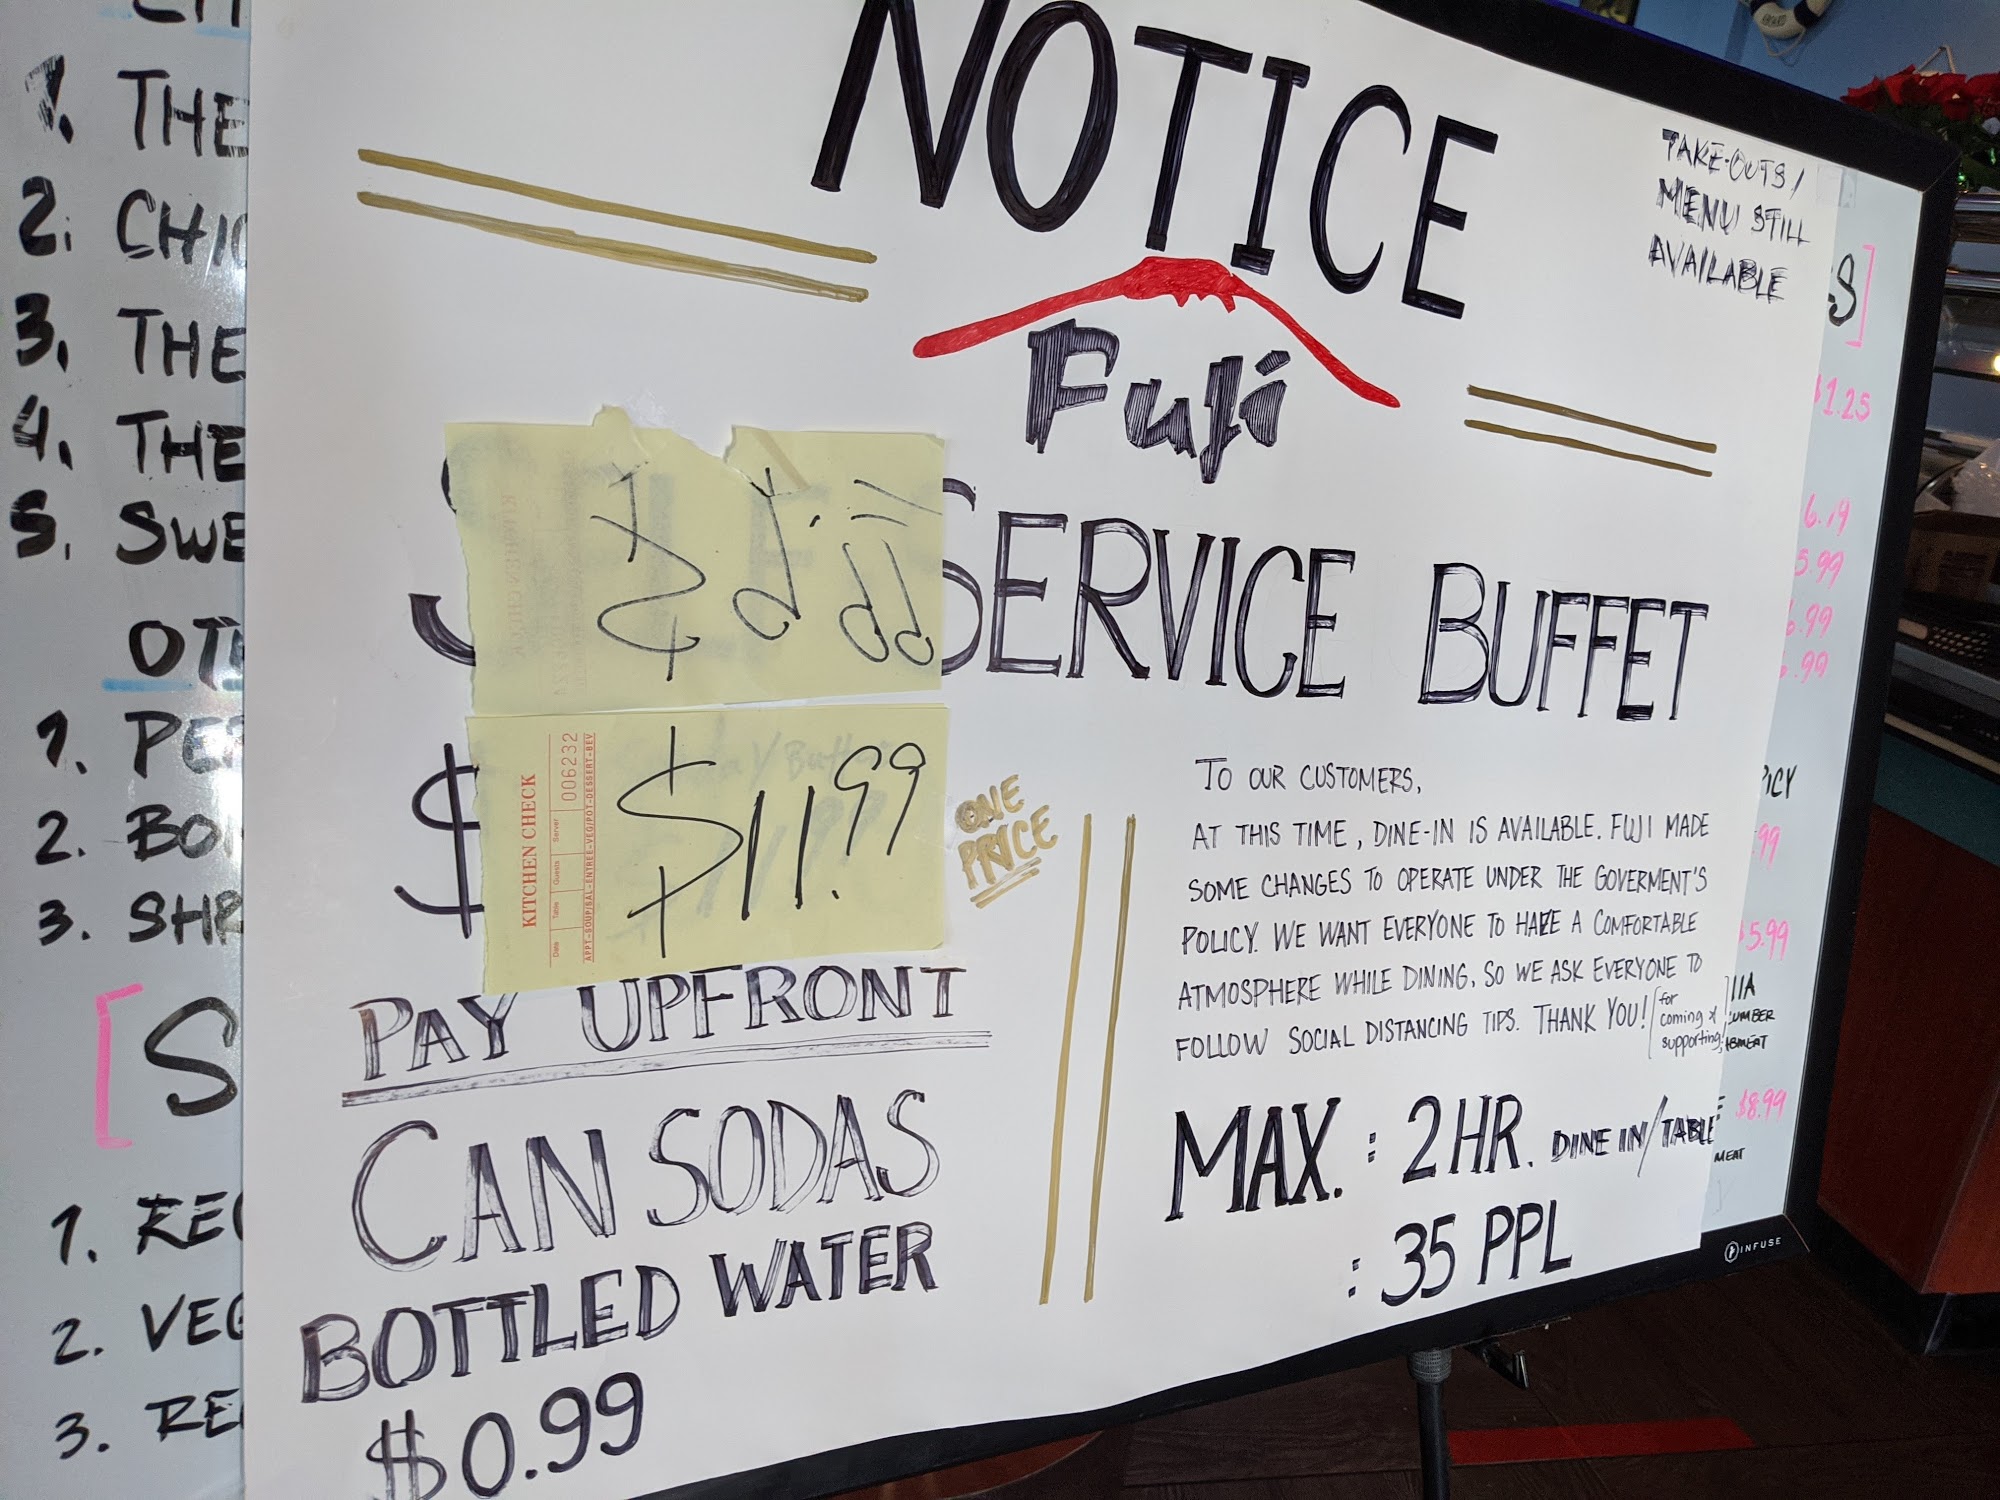 NOTICE
TAKE-OUTS /
MENU STILL
AVAILABLE
Fuji
SERVICE BUFFET
KITCHEN CHECK
006232
Date Table Guests Server
APPT-SOUP/SAL-ENTREE-VEG/POT-DESSERT-BEV
$11.99
$
ONE
PRICE
PAY UPFRONT
CAN SODAS
BOTTLED WATER
$0.99
TO OUR CUSTOMERS,
AT THIS TIME, DINE-IN IS AVAILABLE. FUJI MADE
SOME CHANGES TO OPERATE UNDER THE GOVERMENT'S
POLICY. WE WANT EVERYONE TO HAVE A COMFORTABLE
ATMOSPHERE WHILE DINING, SO WE ASK EVERYONE TO
FOLLOW SOCIAL DISTANCING TIPS. THANK YOU!
for
coming &
supporting!
MAX. : 2 HR. DINE IN/TABLE
: 35 PPL
1. THE
2. CHI
3. THE
4. THE
5. SWE
1.
2. BO
3. SHR
[S
1. RE
2. VEG
3. RE
S]
$1.25
6.19
5.99
6.99
.99
ICY
.99
$5.99
UMBER
$8.99
MEAT
INFUSE